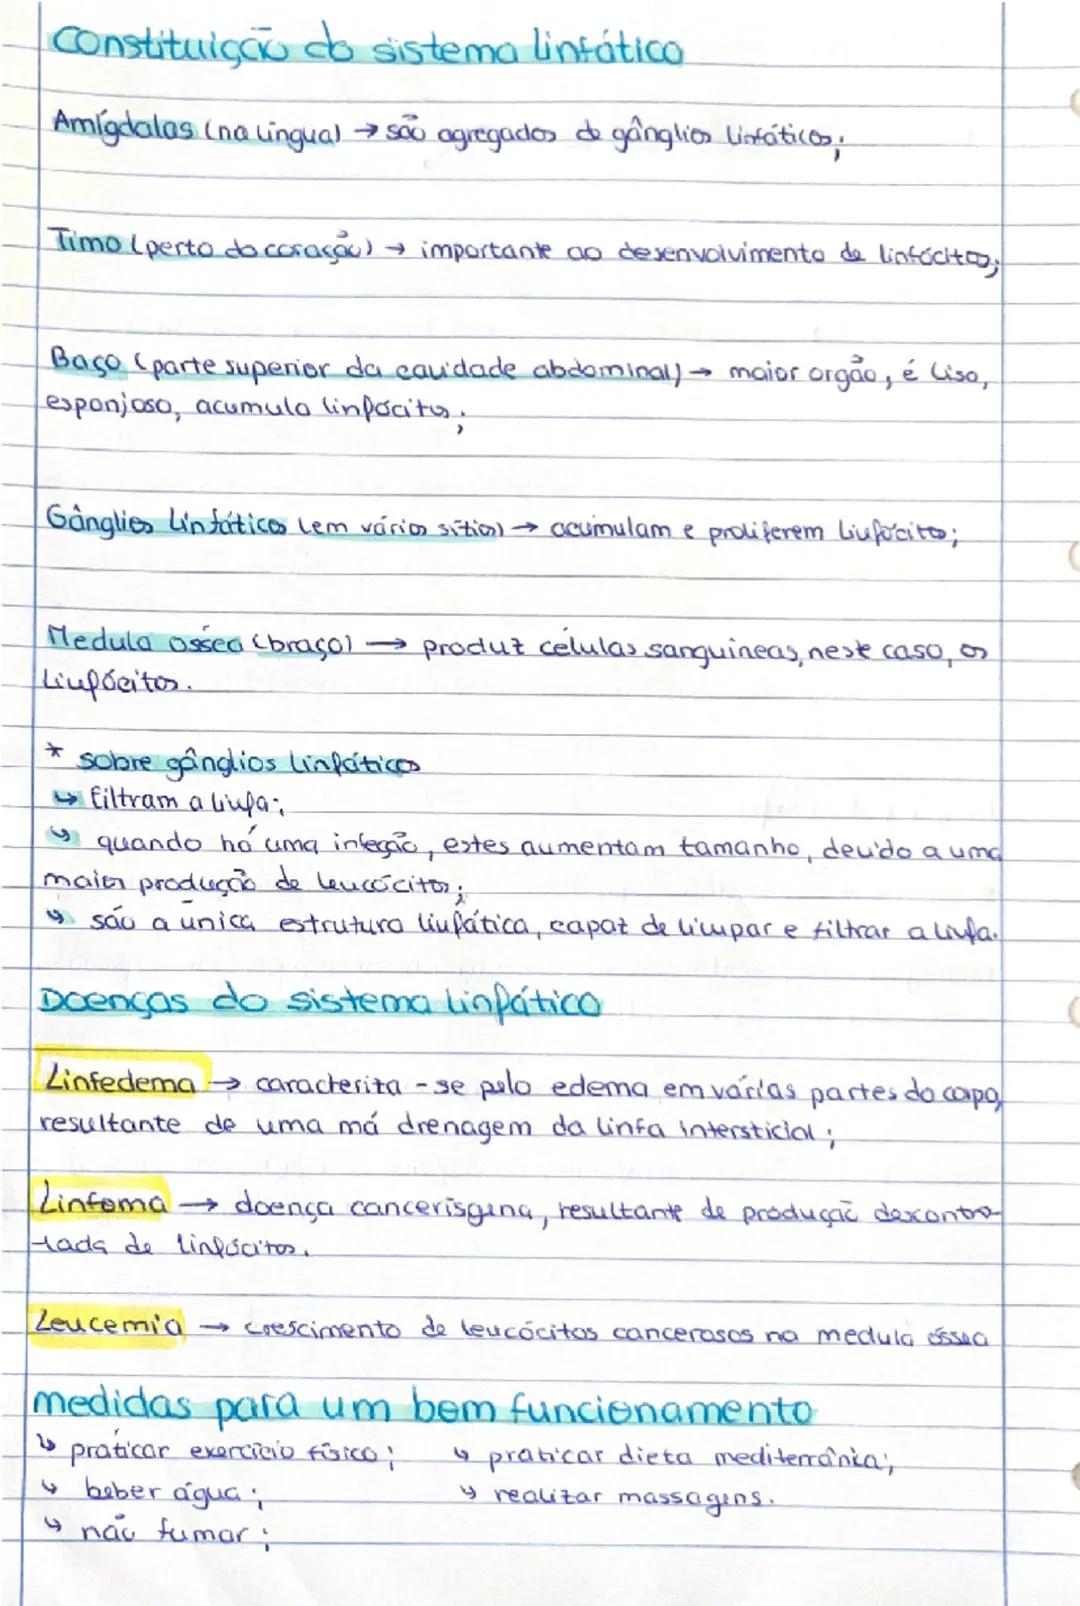 Constituição do sistema linfático
Amígdalas (na língua) → são agregados de gânglios linfáticos;
Timo (perto do coração) → importante ao desenvolvimento de linfócitos;
Baço (parte superior da cavidade abdominal) → maior orgão, é liso,
esponjoso, acumula linfócitos;
Gânglios linfáticos (em vários sítios) → acumulam e proliferem linfócitos;
Medula óssea (braço) → produz células sanguíneas, neste caso, os
linfócitos.
* sobre gânglios linfáticos
↳ filtram a linfa;
↳ quando há uma infeção, estes aumentam tamanho, devido a uma
maior produção de leucócitos;
↳ são a única estrutura linfática, capaz de limpar e filtrar a linfa.
Doenças do sistema linfático
Linfedema → caracteriza-se pelo edema em várias partes do corpo,
resultante de uma má drenagem da linfa intersticial;
Linfoma → doença cancerisgena, resultante de produção descontro-
lada de linfócitos.
Leucemia → crescimento de leucócitos cancerosos na medula óssea
medidas para um bom funcionamento
↳ praticar exercício físico; ↳ praticar dieta mediterrânia;
↳ beber água; ↳ realizar massagens.
↳ não fumar;